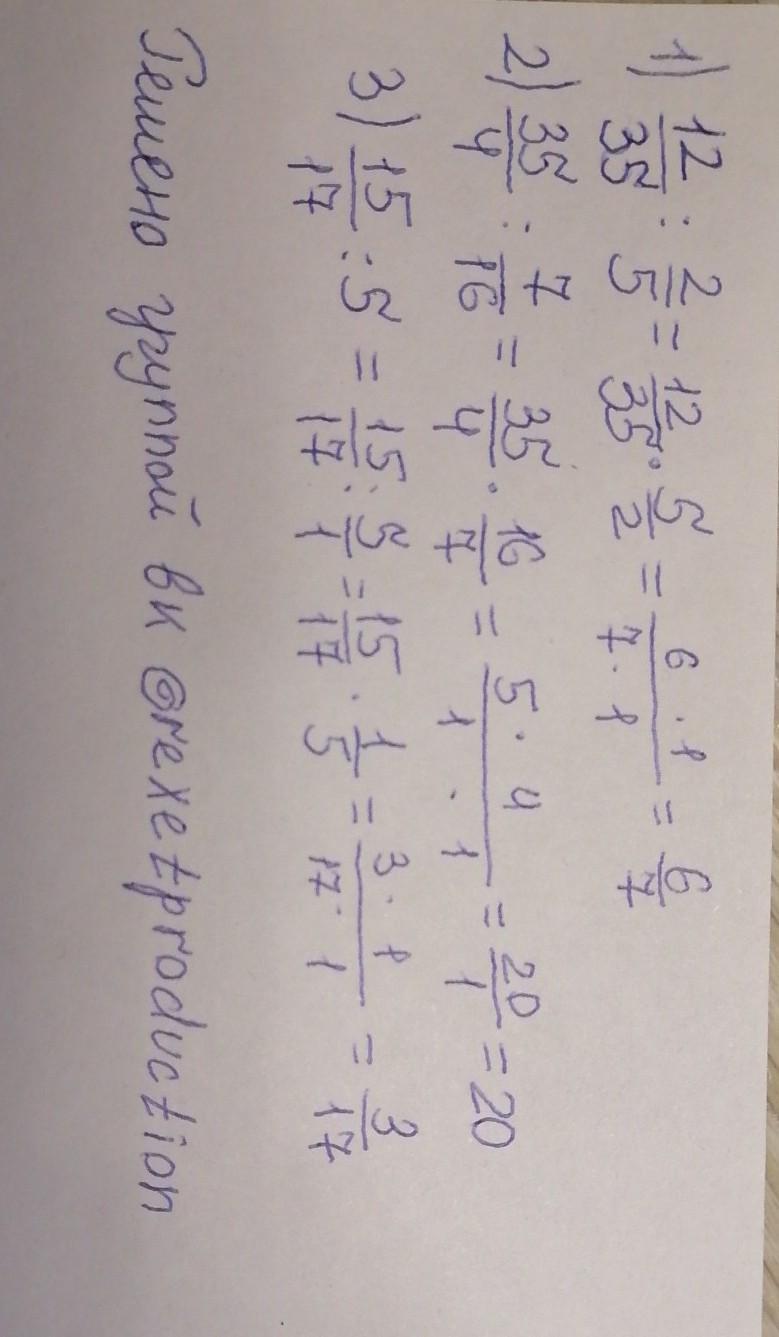 1) 12/35 : 2/5 = 12/35 · 5/2 = 6 · 1/7 · 1 = 6/7
2) 35/4 : 7/16 = 35/4 · 16/7 = 5 · 4/1 · 1 = 20/1 = 20
3) 15/17 : 5 = 15/17 : 5/1 = 15/17 · 1/5 = 3 · 1/17 · 1 = 3/17
Решено группой вк @rexetproduction